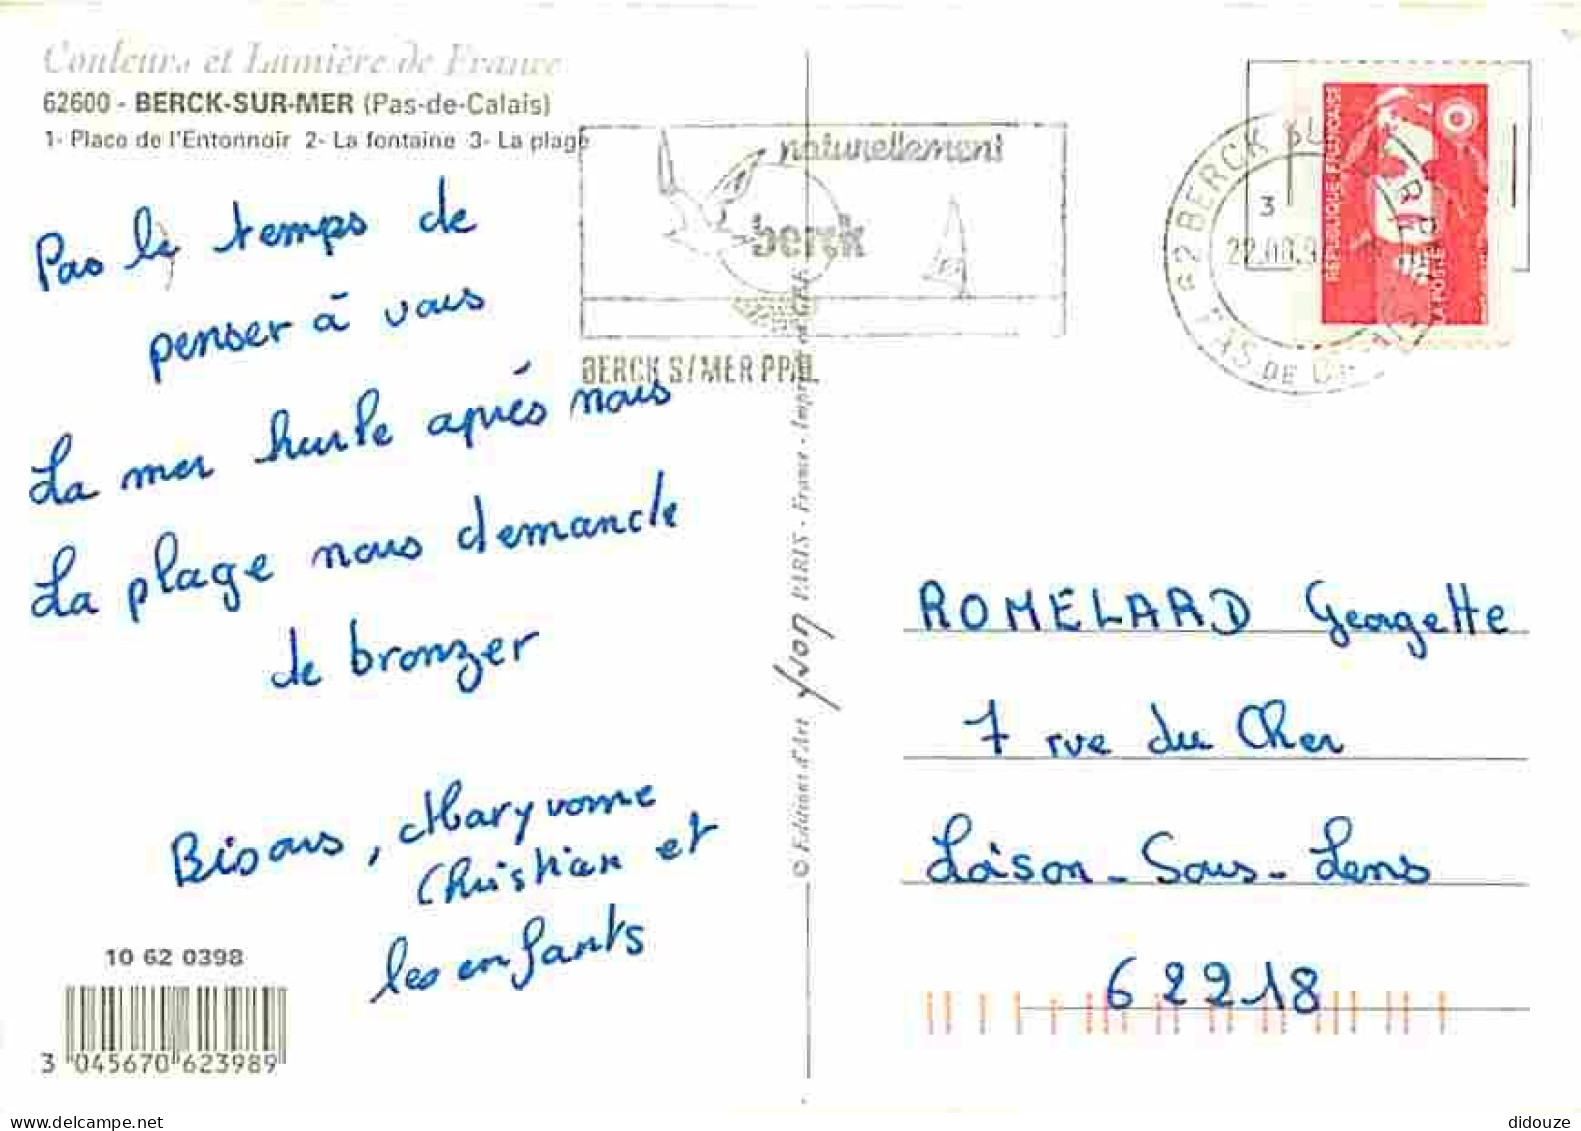 Couleurs et Lumière de France
62600 - BERCK-SUR-MER (Pas-de-Calais)
1- Place de l'Entonnoir 2- La fontaine 3- La plage
naturellement
berck
BERCK S/MER PPAL
62 BERCK
PAS DE
3
RÉPUBLIQUE FRANÇAISE
LA POSTE
Pas le temps de
penser à vous
La mer hurle après nous
La plage nous demande
de bronzer
Bisous, Maryvonne
Christian et
les enfants
10 62 0398
3 045670 623989
© Editions d'Art Yvon PARIS - France - Imprimé en CEE
ROMELARD Georgette
7 rue du Cher
Loison - Sous - Lens
62218
didouze